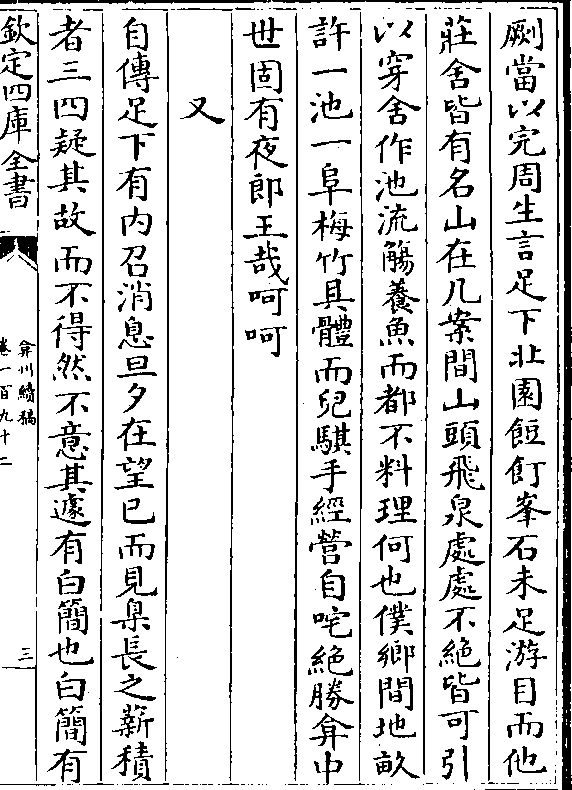 劂當以完周生言足下北園飣餖峯石未足游目而他
莊舍皆有名山在几案間山頭飛泉處處不絕皆可引
以穿舍作池流觴養魚而都不料理何也僕鄉間地畝
許一池一阜梅竹具體而兒騏手經營自咤絕勝弇中
世固有夜郎王哉呵呵
又
自傳足下有内召消息旦夕在望已而見臬長之薪積
者三四疑其故而不得然不意其遽有白簡也白簡有
欽定四庫全書
弇州續稿
卷一百九十二
三